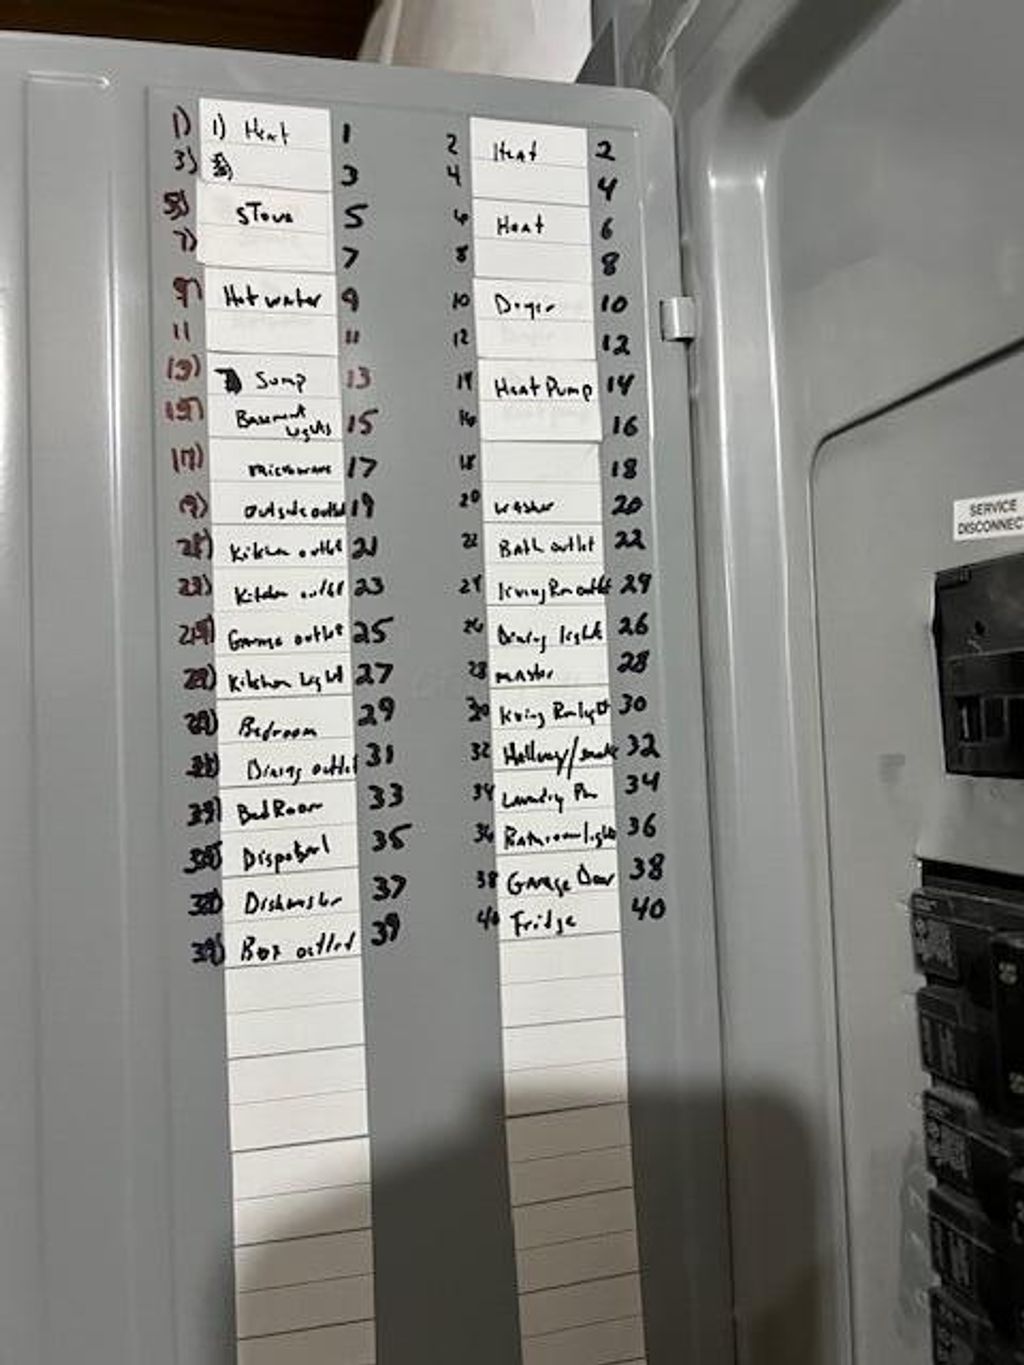 1) 1) Heat 1 2 Heat 2
3) 3) 3 4 4
5) STove 5 6 Heat 6
7) 7 8 8
9) Hot water 9 10 Dryer 10
11 11 12 12
13) Sump 13 14 Heat Pump 14
15) Basement Lights 15 16 16
17) microwave 17 18 18
19) outside outlet 19 20 washer 20
21) Kitchen outlet 21 22 Bath outlet 22
23) Kitchen outlet 23 24 Living Rm outlet 24
25) Garage outlet 25 26 Dining lights 26
Kitchen Light 27 28 master 28
29) Bedroom 29 30 Living Rm light 30
31) Dining outlet 31 32 Hallway/smoke 32
BedRoom 33 34 Laundry Rm 34
Disposal 35 36 Bathroom lights 36
Dishwasher 37 38 Garage Door 38
39) Box outlet 39 40 Fridge 40
SERVICE
DISCONNECT